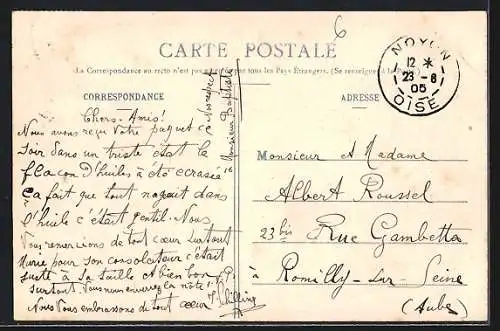 6
CARTE POSTALE
La Correspondance au recto n'est pas acceptée par tous les Pays Étrangers. (Se renseigner à la
NOYON
12 *
23 - 6
05
OISE
CORRESPONDANCE
ADRESSE
Chers Amis!
Nous avons reçu votre paquet ce
soir dans un triste état la
flacon d'huiles à été écrasée
ça fait que tout nageait dans
l'huile c'était gentil. Nous
Vous remercions de tout cœur surtout
Marie pour son consolateur c'était
juste à sa taille et bien bon
surtout. Vous nous enverrez la note
Nous Vous embrassons de tout cœur
Monsieur Baptiste
Monsieur et Madame
Albert Roussel
23 bis Rue Gambetta
à Romilly-sur-Seine
(Aube)